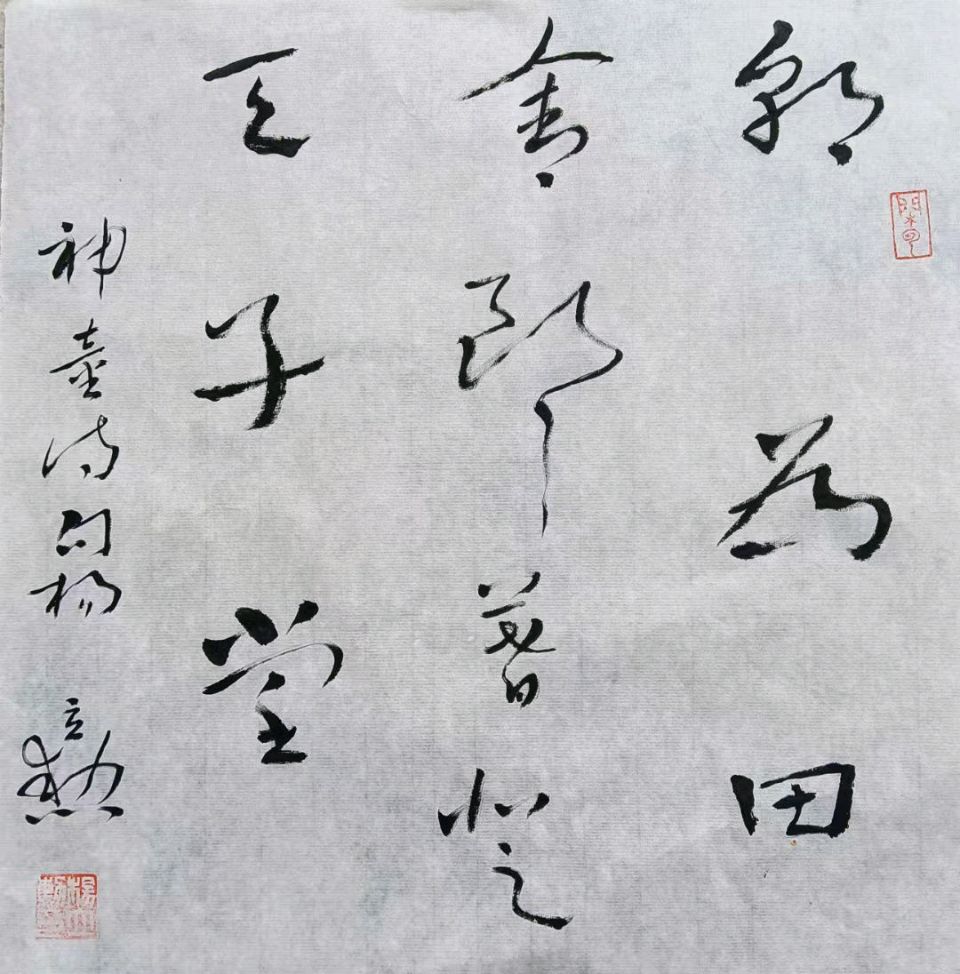 朝为田
舍郎暮登
天子堂
神童诗句杨立勳